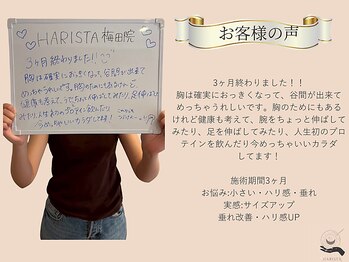 HARISTA 梅田院
3ヶ月終わりました!
胸は確実におっきくなって、谷間が出来て
めっちゃうれしいです。胸のためにもあるけど
健康も考えて、うでちょっと伸ばしてみたり、足伸ばして
みたり、人生初のプロテイン飲んだり
今めっちゃいいカラダしてます!
お客様の声
3ヶ月終わりました!!
胸は確実におっきくなって、谷間が出来て
めっちゃうれしいです。胸のためにもある
けれど健康も考えて、腕をちょっと伸ばして
みたり、足を伸ばしてみたり、人生初のプロ
テインを飲んだり今めっちゃいいカラダ
してます!
施術期間3ヶ月
お悩み:小さい・ハリ感・垂れ
実感:サイズアップ
垂れ改善・ハリ感UP